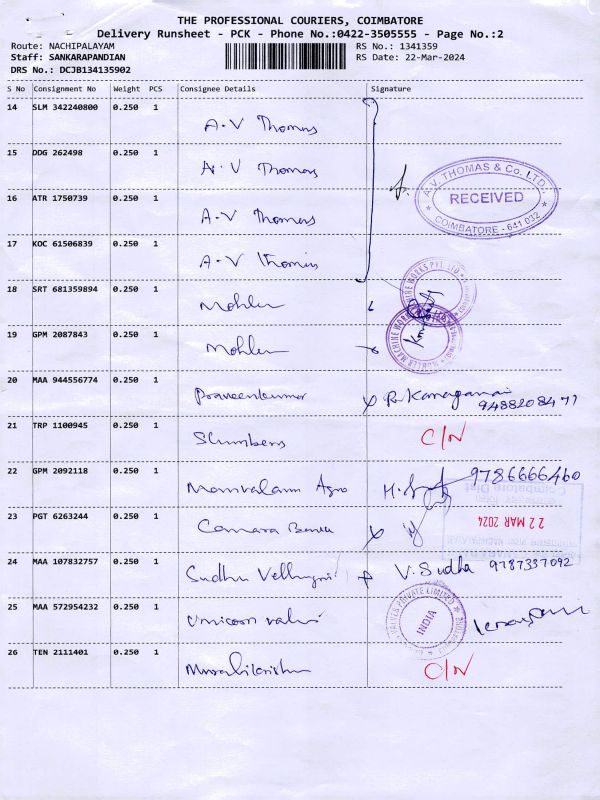 THE PROFESSIONAL COURIERS, COIMBATORE
Delivery Runsheet - PCK - Phone No.:0422-3505555 - Page No.:2
Route: NACHIPALAYAM RS No.: 1341359
Staff: SANKARAPANDIAN RS Date: 22-Mar-2024
DRS No.: DCJB134135902
S No Consignment No Weight PCS Consignee Details Signature
14 SLM 342240800 0.250 1 A.V Thomas
15 DDG 262498 0.250 1 A.V Thomas
16 ATR 1750739 0.250 1 A.V Thomas
17 KOC 61506839 0.250 1 A.V Thomas
A.V. THOMAS & Co. LTD.,
RECEIVED
COIMBATORE - 641 032
18 SRT 681359894 0.250 1 Mohler
19 GPM 2087843 0.250 1 Mohler
20 MAA 944556774 0.250 1 Praveenkumar
9488208471
21 TRP 1100945 0.250 1 Slumbers C/N
22 GPM 2092118 0.250 1 Agro 9786666460
23 PGT 6263244 0.250 1 Canara Bank
22 MAR 2024
24 MAA 107832757 0.250 1 Sudha V. Sudha 9787337092
25 MAA 572954232 0.250 1 Unicorn valves
VALVES PRIVATE LIMITED
INDIA
26 TEN 2111401 0.250 1 Muralikrishna C/N